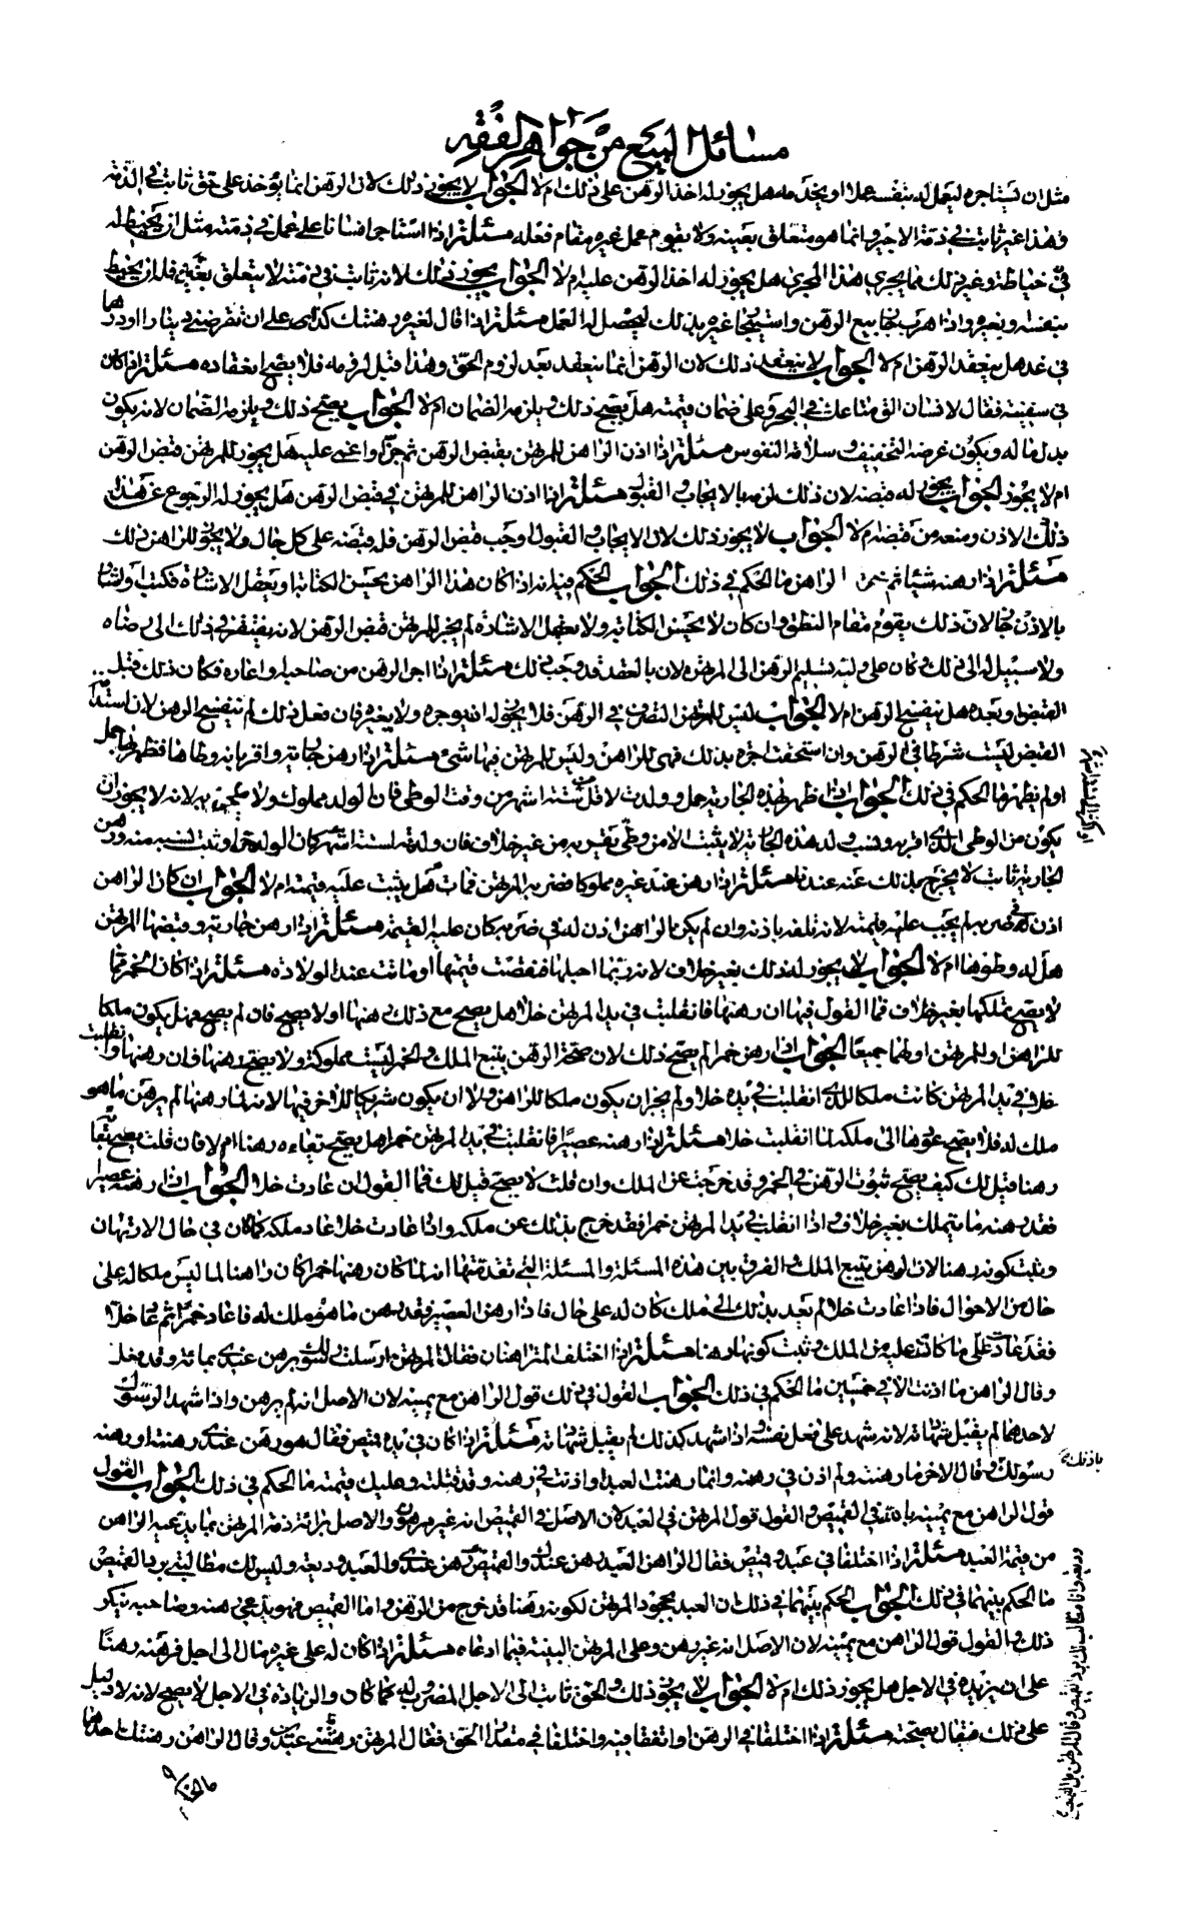 مسائل البيع من جواهر الفقه
مثل ان يستاجره ليعمل له بنفسه عملا او يخدمه هل يجوز له اخذ الرهن على ذلك ام لا الجواب لا يجوز ذلك لان الرهن انما يؤخذ على حق ثابت في الذمة
وهذا غير ثابت في ذمة الاجير وانما هو متعلق بعينه ولا يقوم عمل غيره مقام فعله مسئلة اذا استاجر انسانا على عمل في ذمته مثل ان يحصل له
خياطة وغير ذلك مما يجري هذا المجرى هل يجوز له اخذ الرهن عليه ام لا الجواب يجوز ذلك لانه ثابت في ذمته لا يتعلق بعينه فله ان يحصله
بنفسه وبغيره واذا هرب جاز بيع الرهن واستيجار غيره بذلك ليحصل له العمل مسئلة اذا قال لغيره رهنتك كذا على ان تقرضني دينارا او درهما
في غد هل ينعقد الرهن ام لا الجواب لا ينعقد ذلك لان الرهن انما ينعقد بعد لزوم الحق وهذا قبل لزومه فلا يصح انعقاده مسئلة اذا كان
في سفينة فقال لانسان الق متاعك في البحر وعلى ضمان قيمته هل يصح ذلك ويلزمه الضمان ام لا الجواب يصح ذلك ويلزمه الضمان لانه يكون
بدل ماله ويكون غرضه التخفيف وسلامة النفوس مسئلة اذا اذن الراهن للمرتهن بقبض الرهن ثم جن او اغمي عليه هل يجوز للمرتهن قبض الرهن
ام لا يجوز الجواب يجوز له قبضه لان ذلك لزمه بالايجاب والقبول مسئلة اذا اذن الراهن للمرتهن في قبض الرهن هل يجوز له الرجوع عن هذا
الاذن ومنعه من قبضه ام لا الجواب لا يجوز ذلك لان الايجاب والقبول اوجب قبض الرهن فله قبضه على كل حال ولا يجوز للراهن ذلك
مسئلة اذا رهنه شيئا ثم خرس الراهن ما الحكم في ذلك الجواب الحكم فيه انه اذا كان هذا الراهن يحسن الكتابة او يعقل الاشارة فكتب او اشار
بالاذن جاز لان ذلك يقوم مقام النطق وان كان لا يحسن الكتابة ولا يعقل الاشارة لم يجز للمرتهن قبض الرهن لانه يفتقر في ذلك الى رضاه
ولا سبيل له الى ذلك وكان على وليه تسليم الرهن الى المرتهن لان بالعقد قد وجب ذلك مسئلة اذا اجر الرهن من صاحبه او اعاره فكان ذلك قبل
القبض او بعده هل ينفسخ الرهن ام لا الجواب ليس للمرتهن التصرف في الرهن فلا يجوز له ان يوجره ولا يعيره فان فعل ذلك لم ينفسخ الرهن لان استدامة
القبض ليست شرطا في الرهن وان استحقت اجرة بذلك فهي للراهن وليس للمرتهن فيها شئ مسئلة اذا رهن جارية واقر بانه وطأها فظهر بها حمل
او لم يظهر ما الحكم في ذلك الجواب اذا ظهر بهذه الجارية حمل وولدت لاقل من ستة اشهر من وقت الوطئ فان الولد مملوك ولا يلحق به لانه لا يجوز ان
يكون من الوطئ الذي اقر به ونسب ولد هذه الجارية لا يثبت الا من وطئ يقر به من غير خلاف فان ولدته لستة اشهر كان الولد حرا وثبت نسبه منه ورهن
الجارية ثابت لا يخرج بذلك عنه عندنا مسئلة اذا رهن عند غيره مملوكا فضربه المرتهن فمات هل يثبت عليه قيمته ام لا الجواب ان كان الراهن
اذن له في ضربه لم يجب عليه قيمته لانه تلف باذنه وان لم يكن الراهن اذن له في ضربه كان عليه القيمة مسئلة اذا رهن جارية وقبضها المرتهن
هل له وطؤها ام لا الجواب لا يجوز له ذلك بغير خلاف لانه ربما احبلها فنقصت قيمتها او ماتت عند الولادة مسئلة اذا كان الخمر مما
لا يصح تملكها بغير خلاف فما القول فيها ان رهنها فانقلبت في يد المرتهن خلا هل يصح مع ذلك رهنها او لا يصح فان لم يصح فهل يكون ملكا
للراهن او للمرتهن او لهما جميعا الجواب اذا رهن خمرا لم يصح ذلك لان صحة الرهن يتبع الملك والخمر ليست مملوكة ولا يصح رهنها فان رهنها وانقلبت
خلا في يد المرتهن كانت ملكا للذي انقلبت في يده خلا ولم يجز ان يكون ملكا للراهن ولا ان يكون شريكا للاخر فيها لانه لما رهنها لم يرهن ما هو
ملك له فلا يصح عودها الى ملكه لما انقلبت خلا مسئلة اذا رهنه عصيرا فانقلبت في يد المرتهن خمرا هل يصح بقاءه رهنا ام لا فان قلت يصح بقاؤه
رهنا قيل لك كيف يصح ثبوت الرهن في الخمر وقد خرجت عن الملك وان قلت لا يصح قيل لك فما القول ان عادت خلا الجواب اذا رهنه عصيرا
فقد رهنه ما يتملك بغير خلاف واذا انقلب في يد المرتهن خمرا فقد خرج بذلك عن ملكه واذا عادت خلا عاد ملكه كما كان في حال الارتهان
ويثبت كونه رهنا لان الرهن يتبع الملك والفرق بين هذه المسئلة والمسئلة التي تقدمتها انه لما كان رهنها خمرا كان راهنا لما ليس ملكا له على
حال من الاحوال فاذا عادت خلا لم يعد بذلك الى ملك كان له على حال فاذا رهن العصير فقد رهن ما هو ملك له فاذا عاد خمرا ثم عاد خلا
فقد عادت على ما كانت عليه من الملك وثبت كونها رهنا مسئلة اذا اختلف المتراهنان فقال المرتهن ارسلت رسولك ليرهن عبدك بمائة وقد فعل
وقال الراهن ما اذنت الا في خمسين ما الحكم في ذلك الجواب القول في ذلك قول الراهن مع يمينه لان الاصل انه لم يرهن واذا شهد الرسول
لاحدهما لم يقبل شهادته لانه شهد على فعل نفسه واذا شهد كذلك لم يقبل شهادته مسئلة اذا كان في يده قميص فقال هو رهن عندي رهنته او رهنه
رسولك باذنك وقال الاخر ما رهنته ولم اذن في رهنه وانما رهنت العبد او اذنت في رهنه وقد قتلته وعليك قيمته ما الحكم في ذلك الجواب القول
قول الراهن مع يمينه بالله في القميص والقول قول المرتهن في العبد لان الاصل في القميص انه غير مرهون والاصل براءة ذمة المرتهن مما يدعيه الراهن
من قيمة العبد مسئلة اذا اختلفا في عبد وقميص فقال الراهن العبد رهن عندك والقميص وديعة وانا مطالبك برد القميص وقال المرتهن بل القميص رهن عندي والعبد وديعة وليس لك مطالبتي برد القميص
ما الحكم بينهما في ذلك الجواب الحكم بينهما في ذلك ان العبد بجحود المرتهن لكونه رهنا قد خرج من الرهن واما القميص فهو يدعي رهنه وصاحبه ينكر
ذلك والقول قول الراهن مع يمينه لان الاصل انه غير رهن وعلى المرتهن البينة فيما ادعاه مسئلة اذا كان له على غيره مال الى اجل فرهنه رهنا
على ان يزيده في الاجل هل يجوز ذلك ام لا الجواب لا يجوز ذلك والحق ثابت الى الاجل المضروب له كما كان والزيادة في الاجل لا يصح لانه لا دليل
على ذلك فيقال بصحته مسئلة اذا اختلفا في الرهن او اتفقا فيه واختلفا في مقدار الحق فقال المرتهن رهنتني عبدك وقال الراهن رهنتك احدهما